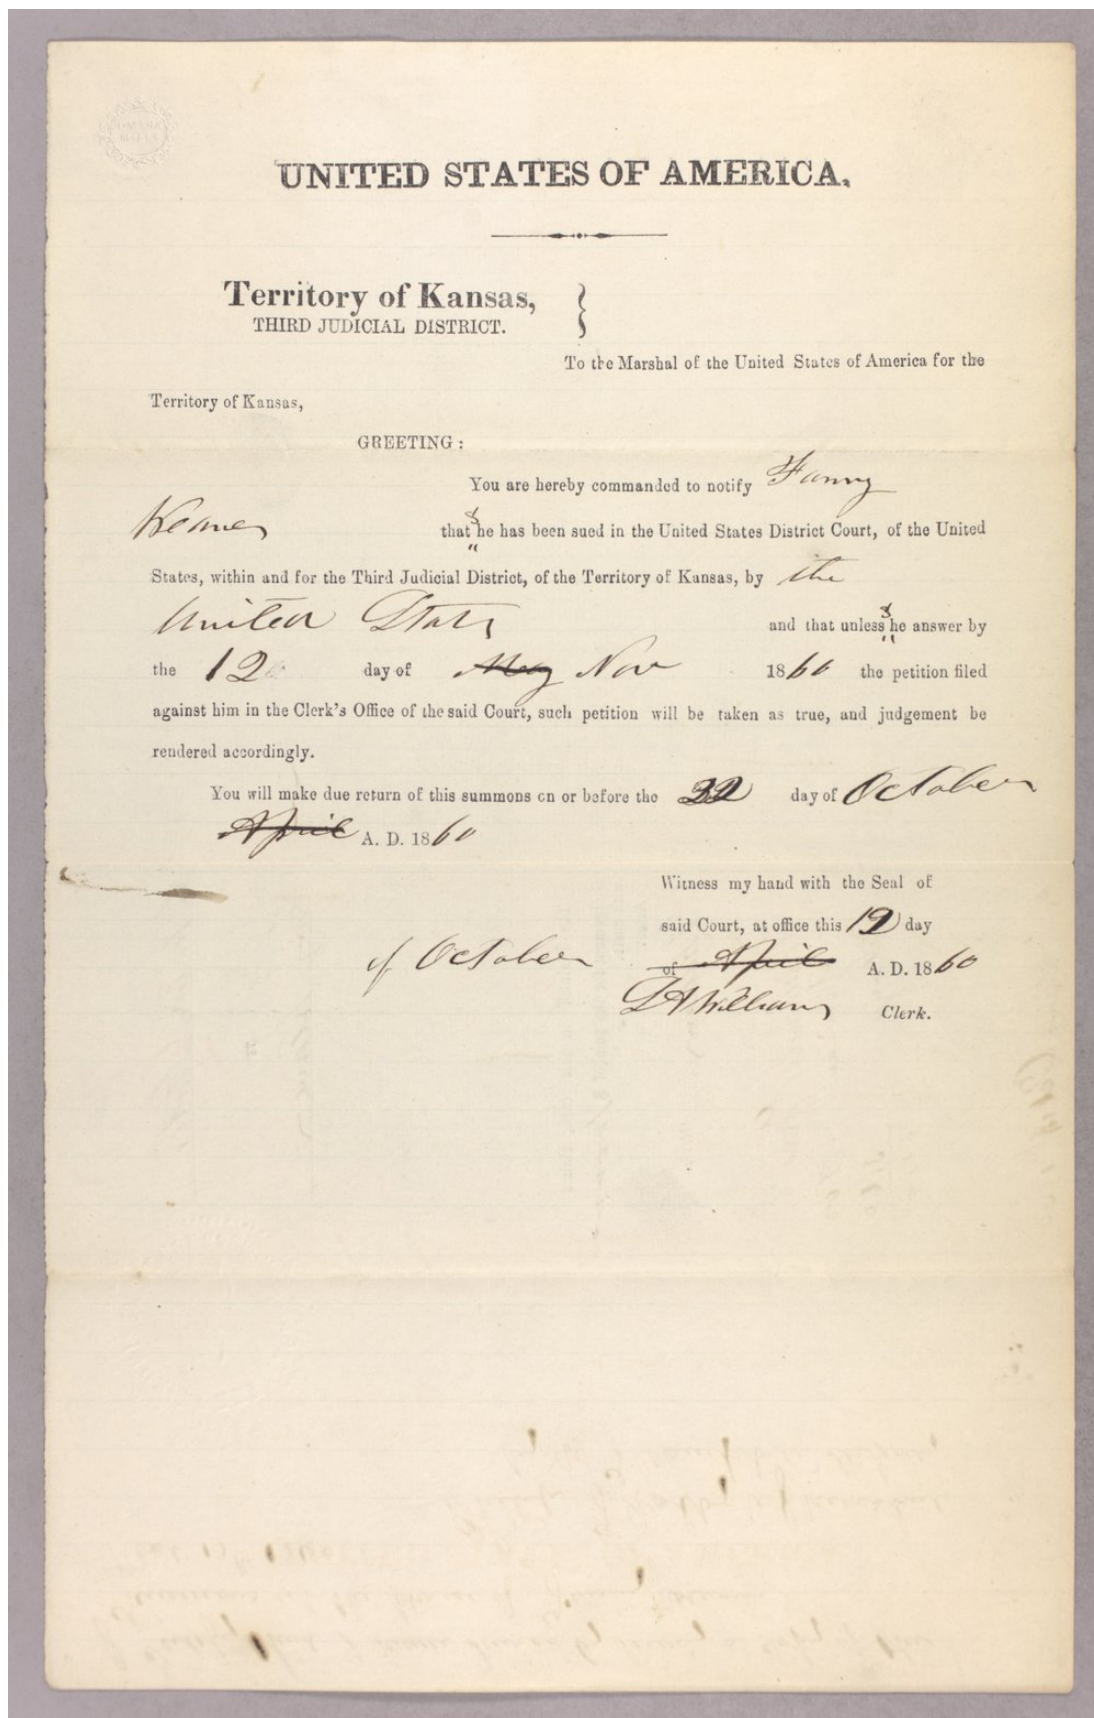 UNITED STATES OF AMERICA.
Territory of Kansas,
THIRD JUDICIAL DISTRICT.
To the Marshal of the United States of America for the
Territory of Kansas,
GREETING:
You are hereby commanded to notify Fanny
Keaner that she has been sued in the United States District Court, of the United
States, within and for the Third Judicial District, of the Territory of Kansas, by the
United States and that unless she answer by
the 12 day of May Nov 1860 the petition filed
against him in the Clerk's Office of the said Court, such petition will be taken as true, and judgement be
rendered accordingly.
You will make due return of this summons on or before the 22 day of October
April A. D. 1860
Witness my hand with the Seal of
said Court, at office this 12 day
of October of April A. D. 1860
L A Williams Clerk.